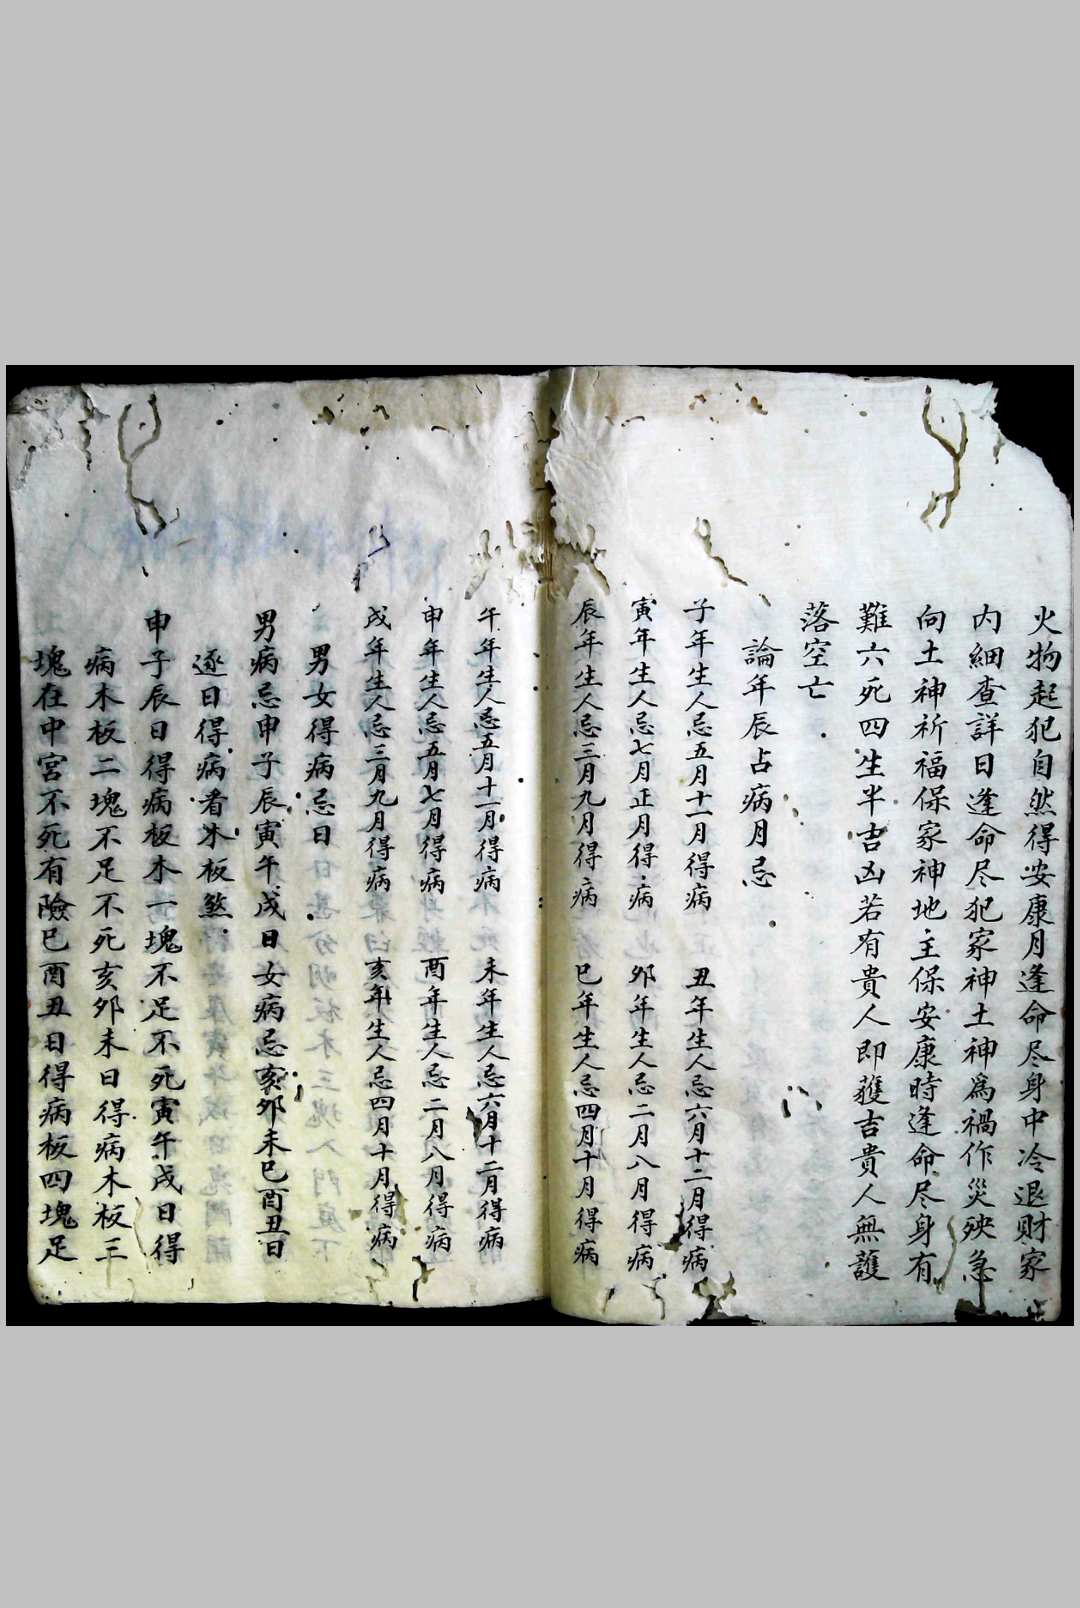 火物起犯自然得安康月逢命尽身中冷退财家
内細查詳日逢命尽犯家神土神為禍作災殃急
向土神祈福保家神地主保安康時逢命尽身有
難六死四生半吉凶若有貴人即䕶吉貴人無護
落空亡
論年辰占病月忌
子年生人忌五月十一月得病 丑年生人忌六月十二月得病
寅年生人忌七月正月得病 夘年生人忌二月八月得病
辰年生人忌三月九月得病 巳年生人忌四月十月得病
午年生人忌五月十一月得病 未年生人忌六月十二月得病
申年生人忌五月七月得病 酉年生人忌二月八月得病
戍年生人忌三月九月得病 亥年生人忌四月十月得病
男女得病忌日
男病忌申子辰寅午戍日女病忌亥夘未巳酉丑日
逐日得病看木板煞
申子辰日得病板木一塊不足不死寅午戍日得
病木板二塊不足不死亥夘未日得病木板三
塊在中宮不死有險巳酉丑日得病板四塊足